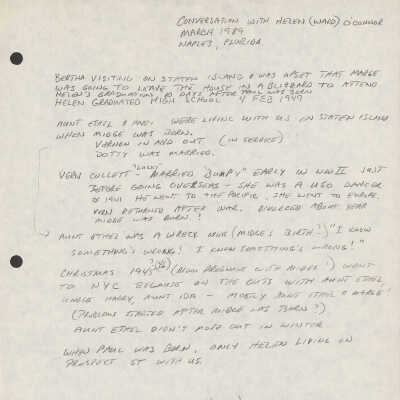 CONVERSATION WITH HELEN (WARD) O'CONNOR
MARCH 1989
NAPLES, FLORIDA
BERTHA VISITING ON STATEN ISLAND & WAS UPSET THAT MARGE
WAS GOING TO LEAVE THE HOUSE IN A BLIZZARD TO ATTEND
HELEN'S GRADUATION 10 DAYS AFTER PAUL WAS BORN
HELEN GRADUATED HIGH SCHOOL 4 FEB 1949
AUNT ETHEL & WERE LIVING WITH US IN STATEN ISLAND
WHEN MIDGE WAS BORN.
VERNON IN AND OUT (IN SERVICE)
DOTTY WAS MARRIED.
"LUCKY"
VERN CULLETT - MARRIED "BUMPY" EARLY IN WWII JUST
BEFORE GOING OVERSEAS - SHE WAS A USO DANCER
1941 HE WENT TO THE PACIFIC, SHE WENT TO EUROPE.
VERN RETURNED AFTER WAR. DIVORCED ABOUT YEAR
MIDGE WAS BORN.?
→ AUNT ETHEL WAS A WRECK (MIDGE'S BIRTH?) "I KNOW
SOMETHING'S WRONG! I KNOW SOMETHING'S WRONG!"
CHRISTMAS 1945 (MOM PREGNANT WITH MIDGE?) WENT
TO NYC BECAUSE ON THE OUTS WITH AUNT ETHEL,
UNCLE HARRY, AUNT IDA - MOSTLY AUNT ETHEL & MARGE!
(PROBLEM STARTED AFTER MIDGE WAS BORN?)
AUNT ETHEL DIDN'T MOVE OUT IN WINTER
WHEN PAUL WAS BORN, ONLY HELEN LIVING ON
PROSPECT ST WITH US.